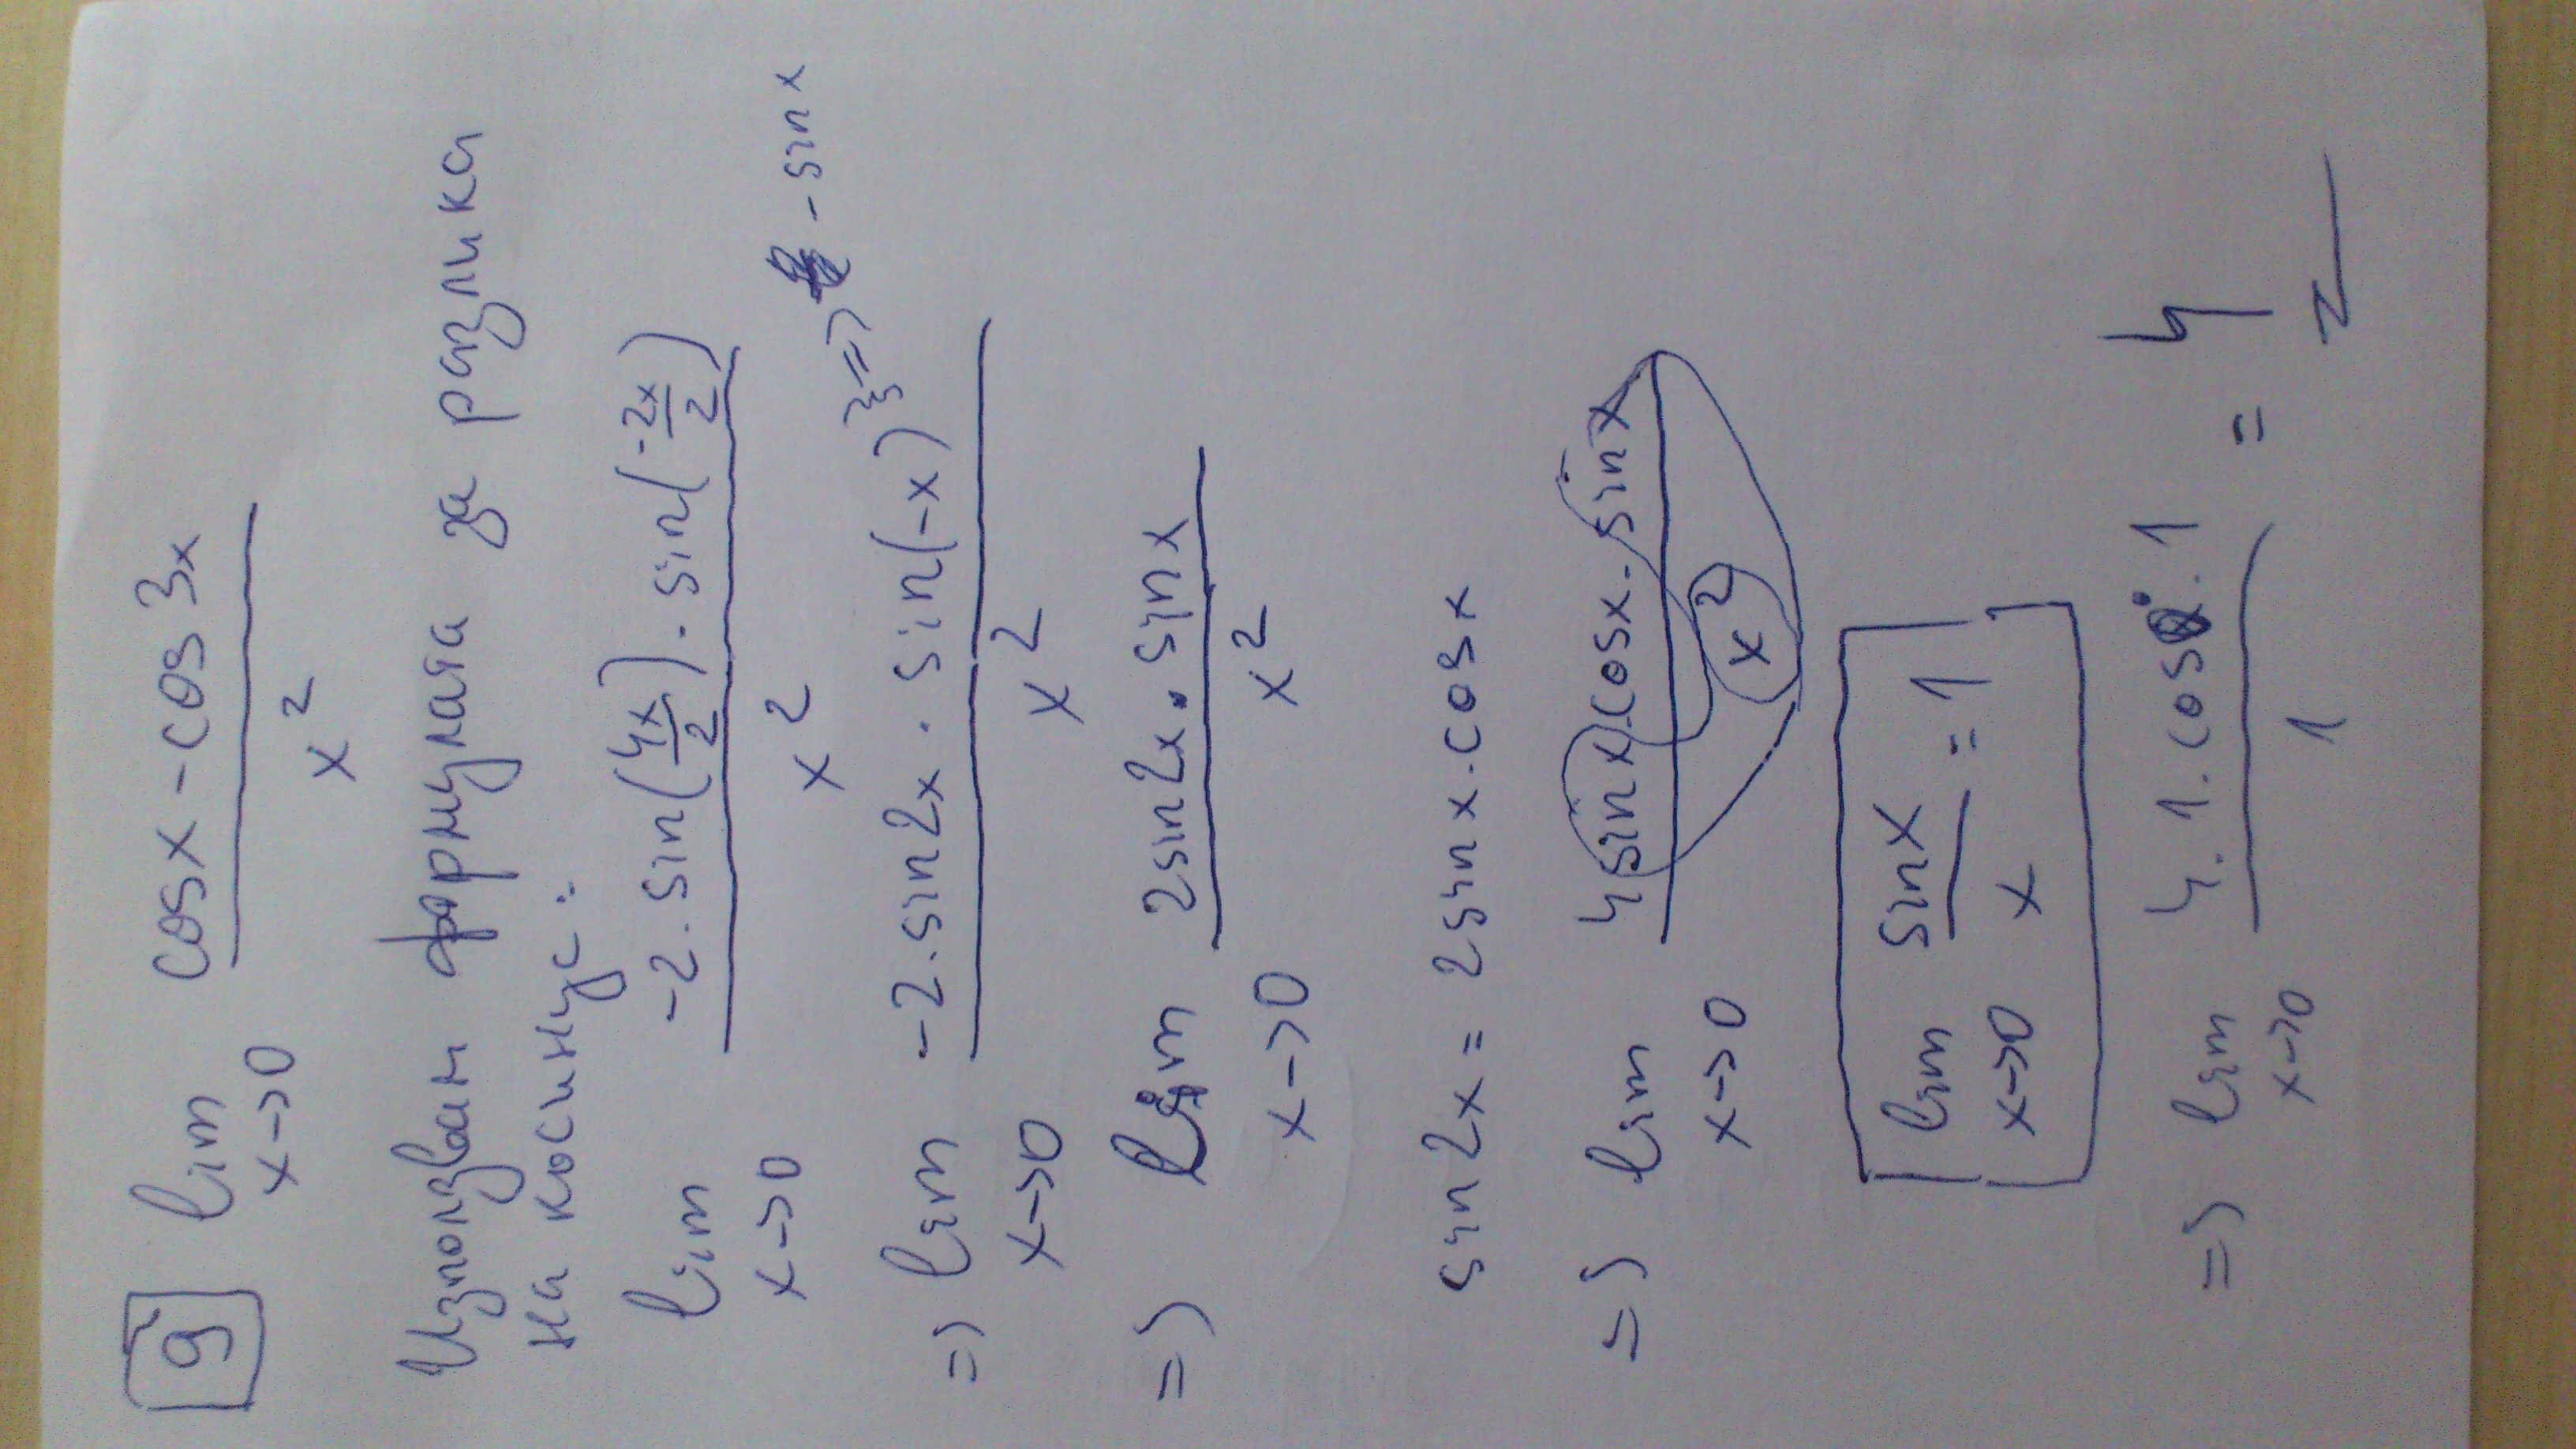 9 lim x→0 (cosx - cos3x) / x²
Използвам формулата за разлика
на косинус:
lim x→0 (-2.sin(4x/2).sin(-2x/2)) / x²
=> lim x→0 (-2.sin2x.sin(-x)) / x² } => -sinx
=> lim x→0 (2sin2x.sinx) / x²
sin2x = 2sinx.cosx
=> lim x→0 (4sinx.cosx.sinx) / x²
[lim x→0 sinx / x = 1]
=> lim x→0 (4.1.cos0.1) / 1 = 4